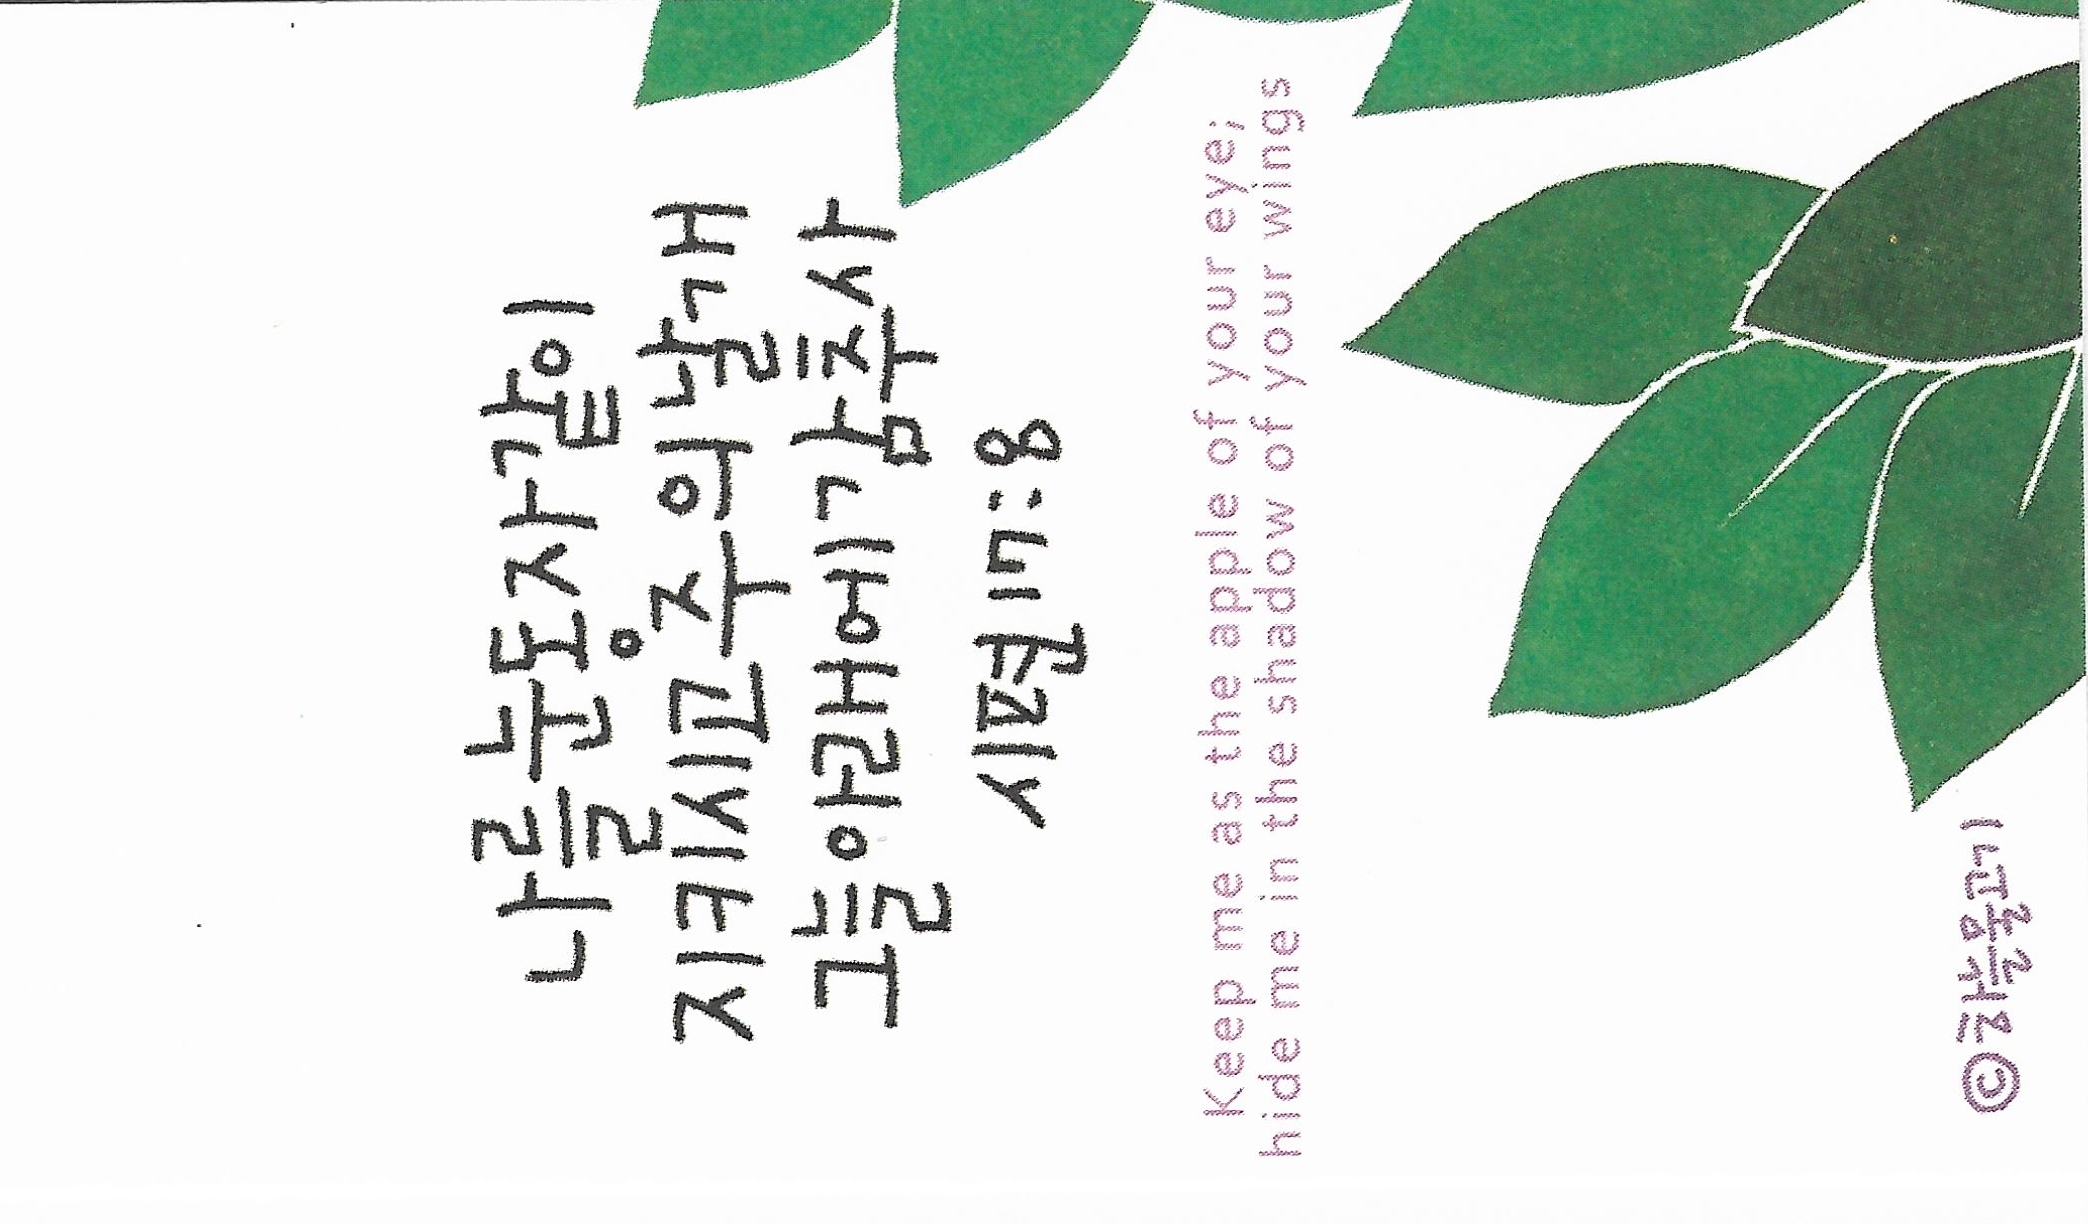 나를 눈동자 같이
지키시고 주의 날개
그늘 아래에 감추사
시편 17:8
Keep me as the apple of your eye;
hide me in the shadow of your wings
© 하늘물고기